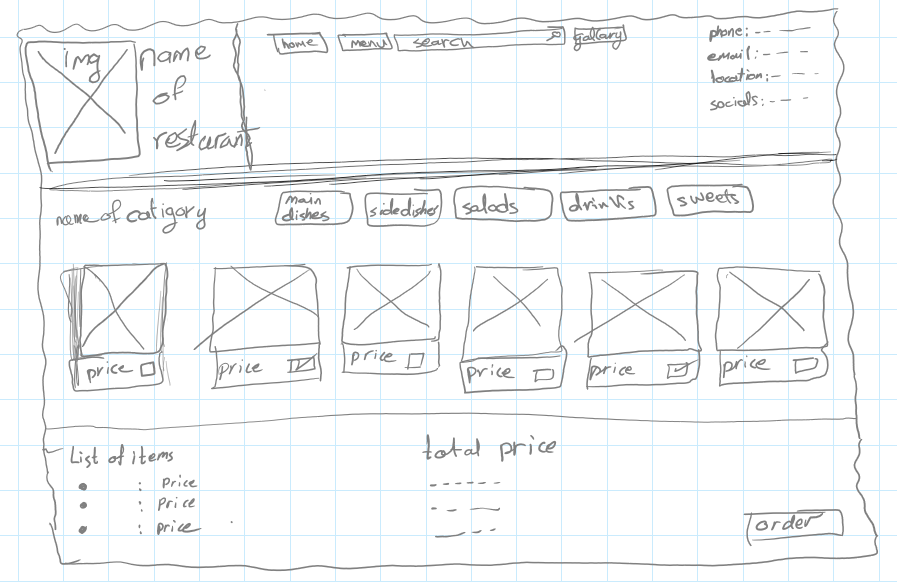 img
name
of
resturant
home
menu
search
gallary
phone:
email:
location:
socials:
name of catigory
main
dishes
sidedishes
salads
drinks
sweets
price
price
price
price
price
price
List of items
: Price
: Price
: price
total price
order